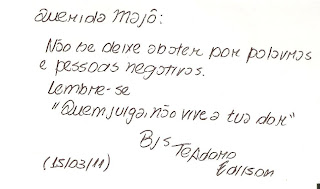 Querida Majô:
Não se deixe abater por palavras
e pessoas negativas.
Lembre-se
"Quem julga, não vive a tua dor"
Bjs Te Adoro
(15/03/11) Edilson